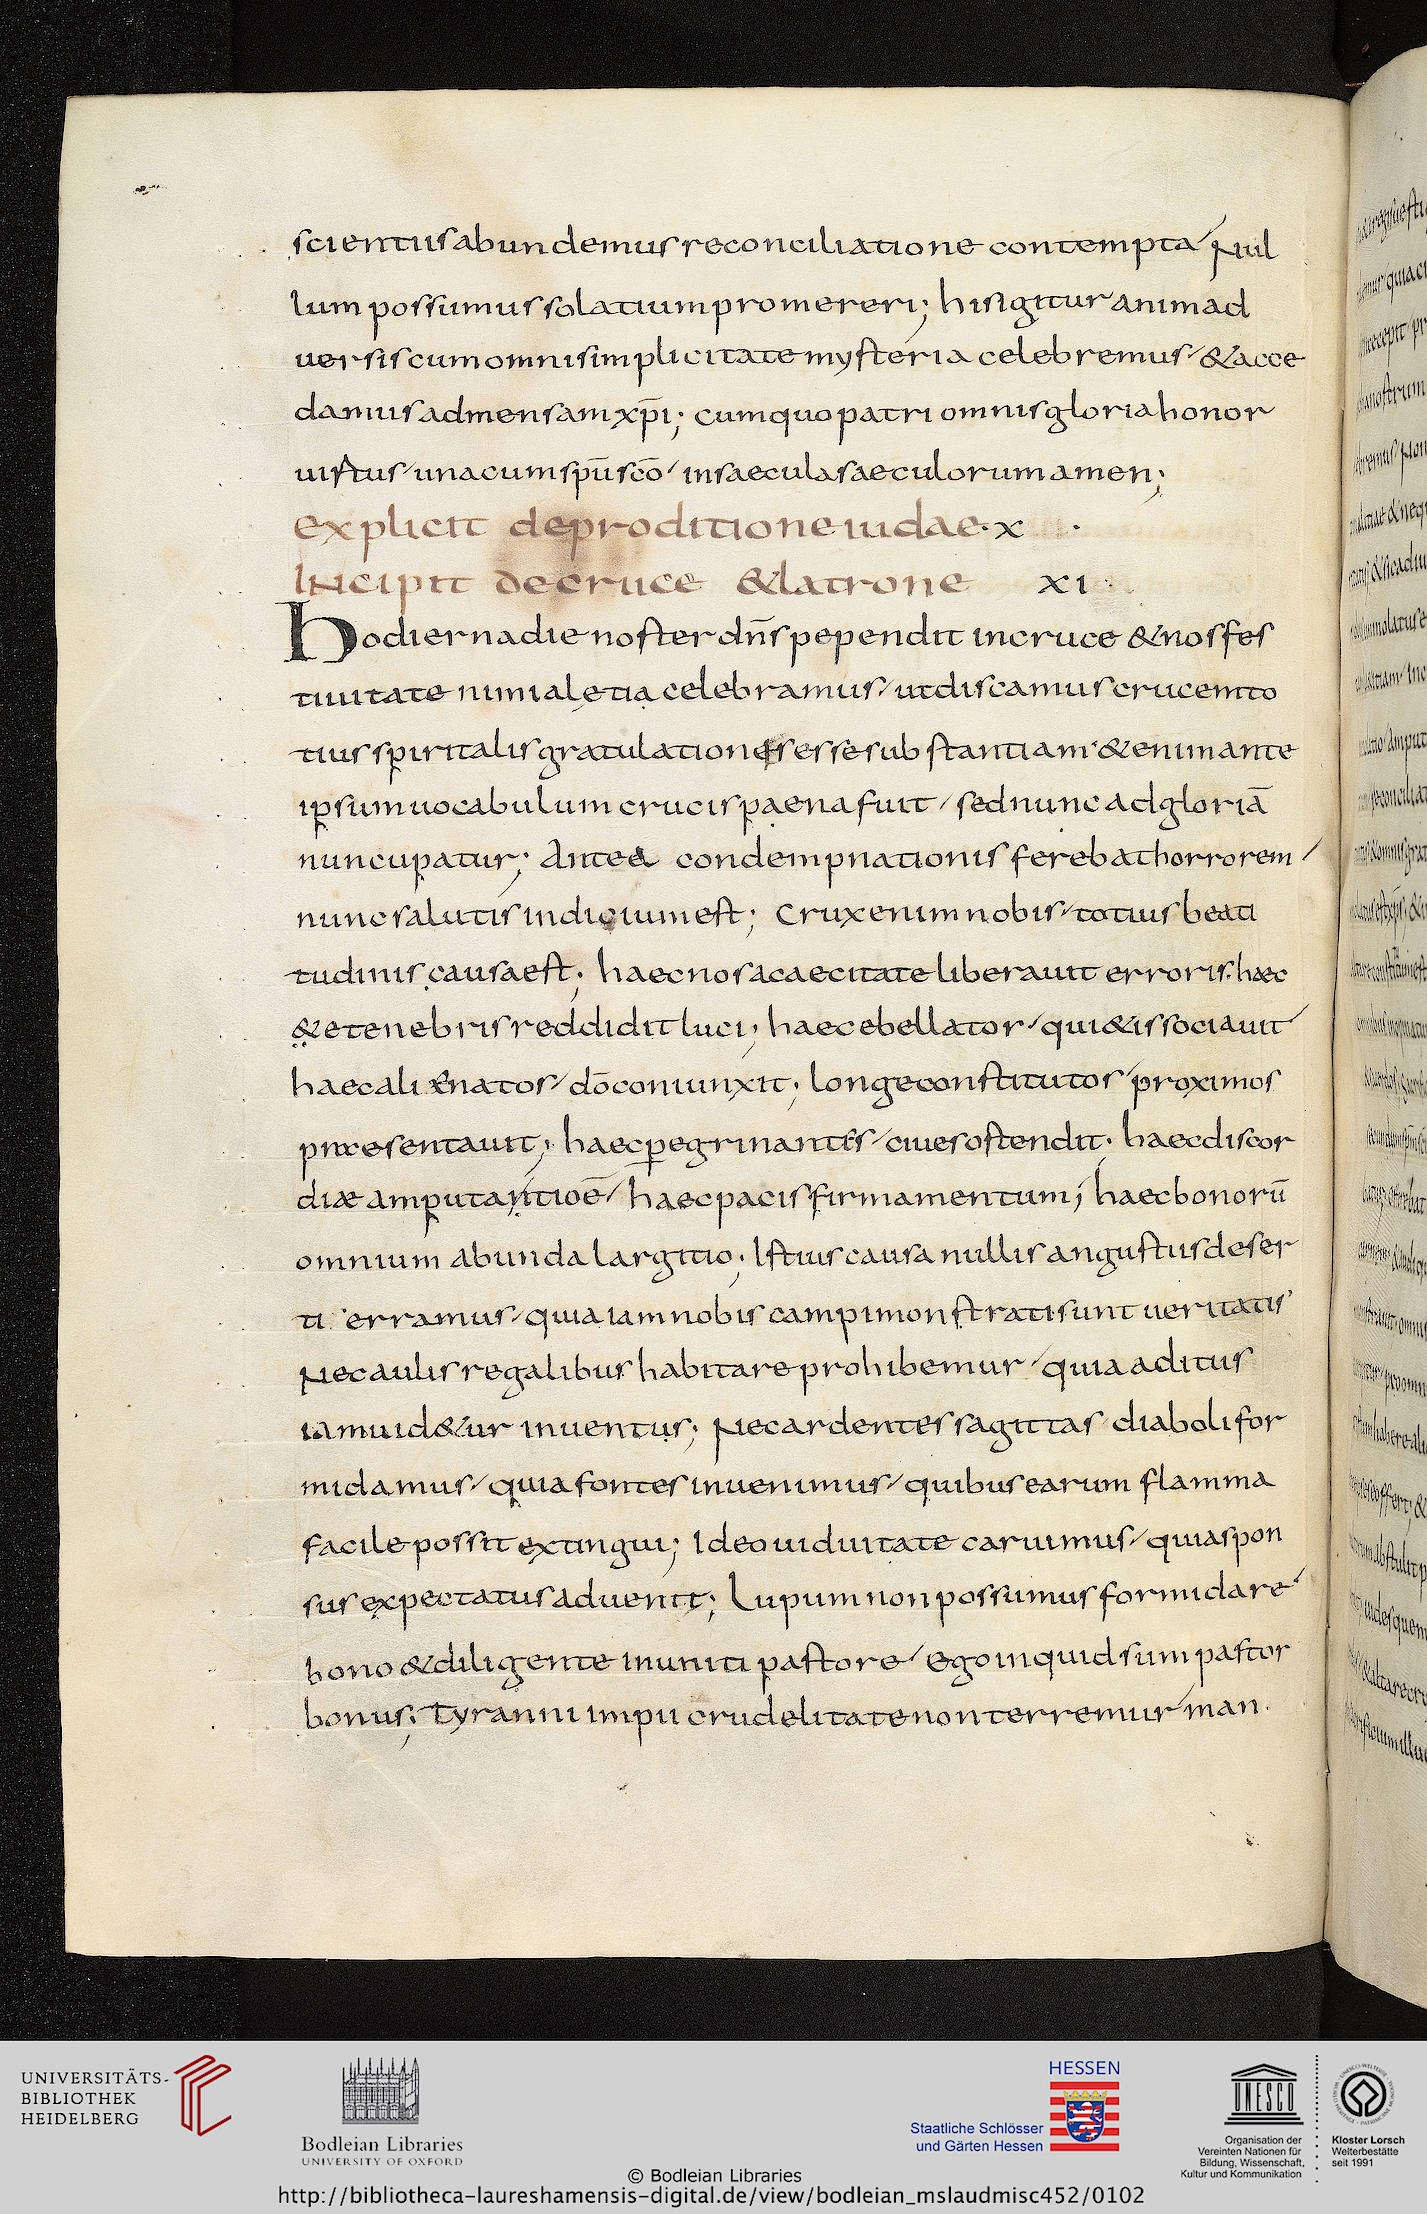 scientiis abundemus reconciliatione contempta Nul
lum possumus solatium promereri; his igitur animad
uersis cum omni simplicitate mysteria celebremus & acce
damus ad mensam xp̄i; cum quo patri omnis gloria honor
uirtus una cum sp̄u sc̄o in saecula saeculorum amen;
explicit de proditione iudae · x ·
INcipit de cruce & latrone xi
Hodierna die noster dn̄s pependit in cruce & nos fes
tiuitate nimia lętia celebramus ut discamus crucem to
tius spiritalis gratulationes esse substantiam & enim ante
ipsum uocabulum crucis paena fuit sed nunc ad gloriā
nuncupatur; Antea condempnationis ferebat horrorem
nunc salutis indicium est; Crux enim nobis totius beati
tudinis causa est; haec nos a caecitate liberauit erroris. haec
& e tenebris reddidit luci; haec ebellator qui & issociauit
haec alienatos dō coniunxit; longe constitutos proximos
praesentauit; haec peregrinantes ciues ostendit; haec discor
diæ amputantioē haec pacis firmamentum; haec bonorū
omnium abunda largitio; Istius causa nullis angustus deser
ti erramus quia iam nobis campi monstrati sunt ueritatis
Nec aulis regalibus habitare prohibemur quia aditus
iam uid&ur inuentus; Nec ardentes sagittas diaboli for
midamus quia fontes inuenimus quibus earum flamma
facile possit extingui; Ideo uiduitate caruimus quia spon
sus expectatus aduenit; Lupum non possumus formidare
bono & diligente inuniti pastore ego inquid sum pastor
bonus; Tyranni impii crudelitate non terremur man
UNIVERSITÄTS-
BIBLIOTHEK
HEIDELBERG
Bodleian Libraries
UNIVERSITY OF OXFORD
HESSEN
Staatliche Schlösser
und Gärten Hessen
UNESCO
Organisation der
Vereinten Nationen für
Bildung, Wissenschaft,
Kultur und Kommunikation
Kloster Lorsch
Welterbestätte
seit 1991
© Bodleian Libraries
http://bibliotheca-laureshamensis-digital.de/view/bodleian_mslaudmisc452/0102